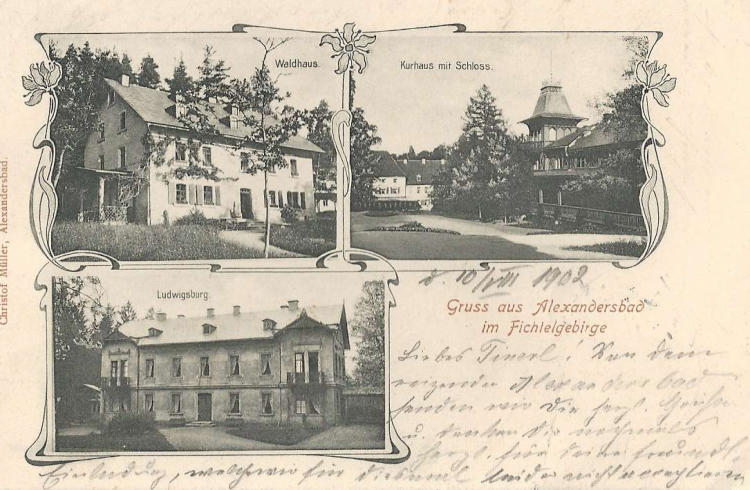 Waldhaus.
Kurhaus mit Schloss.
Ludwigsburg.
Christof Müller, Alexandersbad.
d. 10/VIII 1902.
Gruss aus Alexandersbad
im Fichtelgebirge
Liebes Tinerl! Von dem
reizenden Alexandersbad
senden wir Dir herzl. Grüße
u. danken Dir nochmals
herzl. für Deine freundl.
Einladung, welche wir für diesmal leider nicht